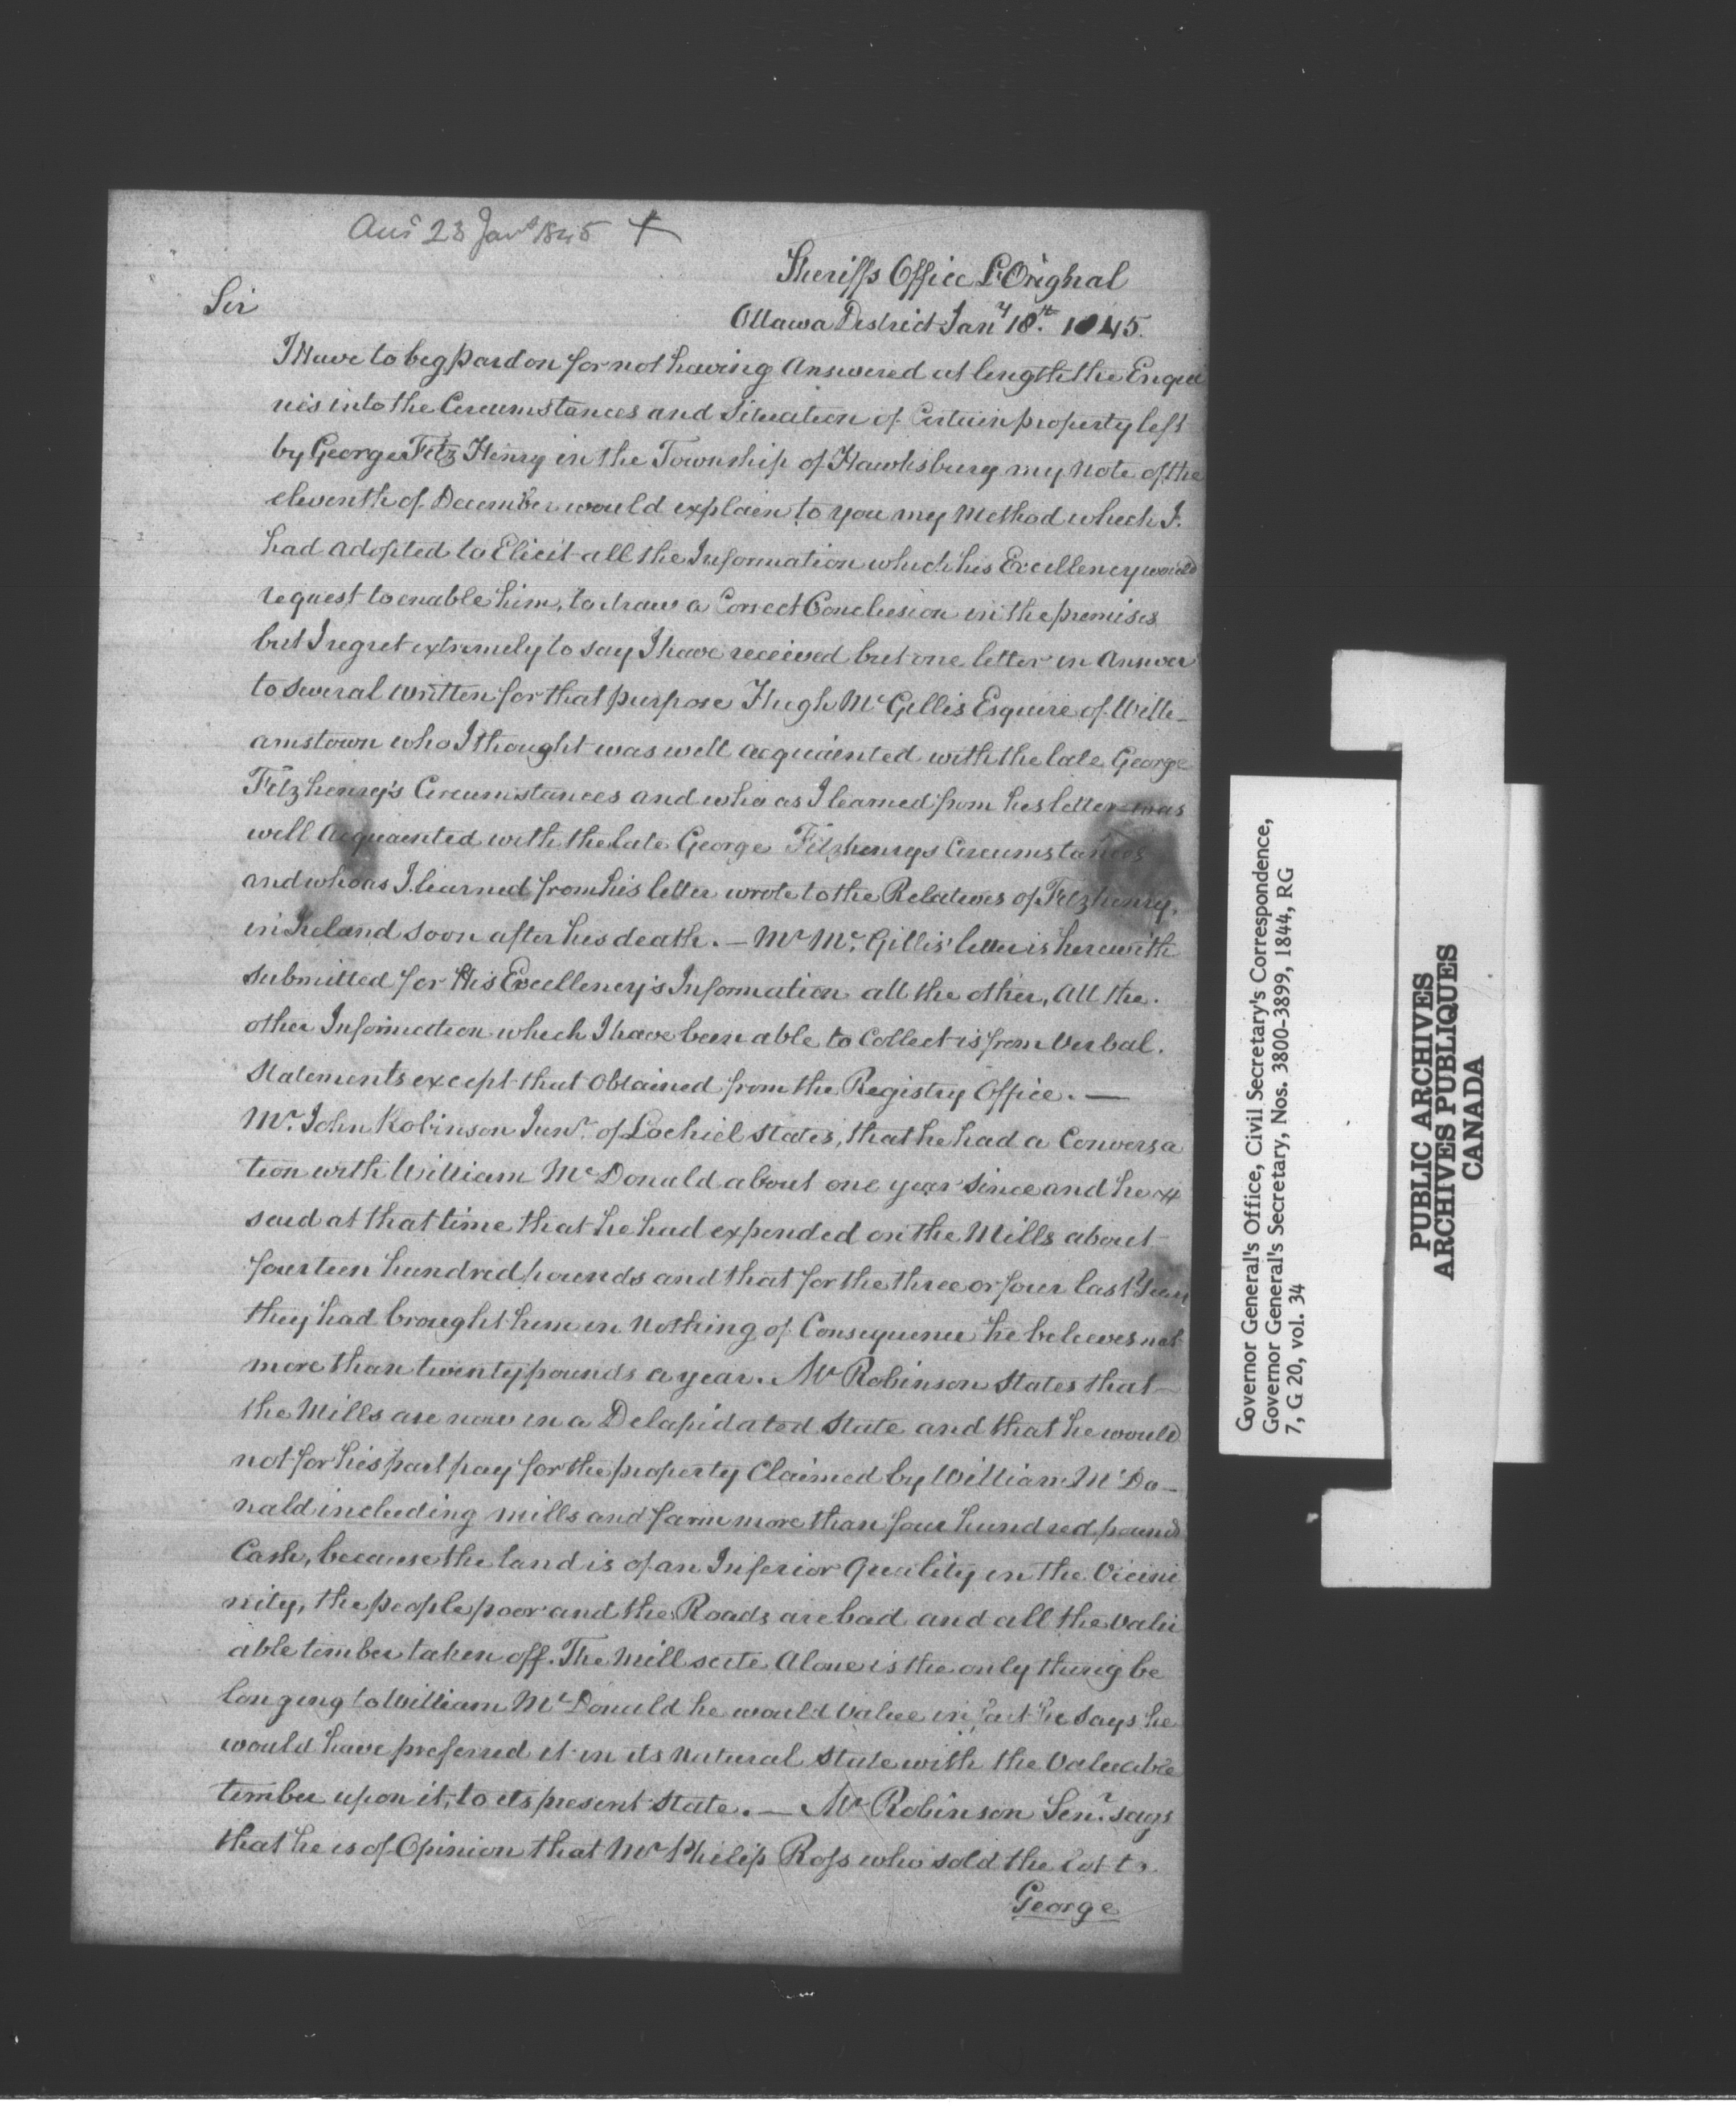 Ansd 23 Jany 1845
Sheriffs Office L'Orignal
Sir
Ottawa District Jany 18th. 1845.
I Have to beg pardon for not having Answered at length the Enqui
ries into the Circumstances and Situation of Certain property left
by George Fitz Henry in the Township of Hawksbury my Note of the
eleventh of December would explain to you my Method which I.
had adopted to Elicit all the Information which his Excellency would
request to enable him, to draw a Correct Conclusion in the premises
but I regret extremely to say I have received but one letter in Answer
to several written for that purpose Hugh McGillis Esquire of Willi-
amstown who I thought was well acquainted with the late George
Fitzhenry's Circumstances and who as I learned from his letter was
well Acquainted with the late George Fitzhenrys Circumstances
and who as I learned from his letter wrote to the Relatives of Fitzhenry,
in Ireland soon after his death. — Mr Mc. Gillis' letter is herewith
submitted for His Excellency's Information all the other, All the.
other Information which I have been able to Collect is from Verbal.
Statements except that Obtained from the Registry Office. —
Mr. John Robinson Junr. of Lochiel states, that he had a Conversa
tion with William McDonald about one year since and he
said at that time that he had expended on the Mills about
fourteen hundred pounds and that for the three or four last Years
they had brought him in Nothing of Consequence he believes not
more than twenty pounds a year. Mr Robinson States that—
the Mills are now in a Delapidated State and that he would
not for his part pay for the property Claimed by William McDo-
nald including mills and farm more than four hundred pounds
Cash, because the land is of an Inferior Quality in the Vicini
nity, the people poor and the Roads are bad and all the Valu
able timber taken off. The Mill scite Alone is the only thing be
longing to William McDonald he would Value in fact he says he
would have preferred it in its Natural State with the Valuable
timber upon it, to its present state. — Mr Robinson Senr. says
that he is of Opinion that Mr Philip Ross who sold the Lot to
George
Governor General's Office, Civil Secretary's Correspondence,
Governor General's Secretary, Nos. 3800-3899, 1844, RG
7, G 20, vol. 34
PUBLIC ARCHIVES
ARCHIVES PUBLIQUES
CANADA